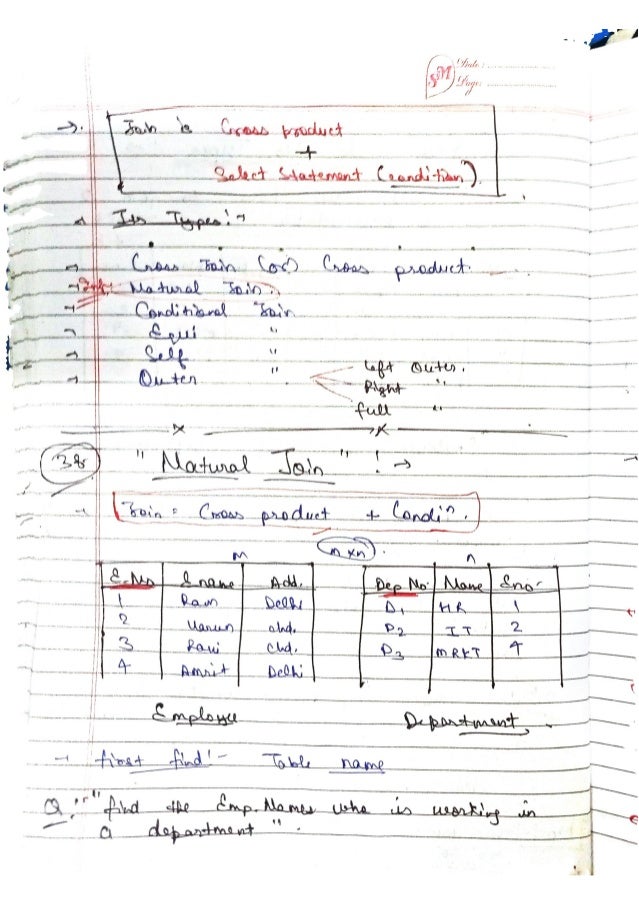 SM Date:
Page:
→. Join is Cross product
+
Select Statement (condition).
Its Types:→
→ Cross Join (or) Cross product.
→ Natural Join.
→ Conditional Join
→ Equi "
→ Self "
→ Outer " Left Outer.
Right "
full "
38 "Natural Join"! →
→ Join = Cross product + Condin.
m n×n. n
E.No Ename Add. Dep No. Name Eno.
1 Ram Delhi D1 HR 1
2 Varun chd. D2 IT 2
3 Ravi Chd. D3 MRKT 4
4 Amrit Delhi
Employee Department
→ first find!- Table name
Q:- "find the Emp. Names who is working in
a department".